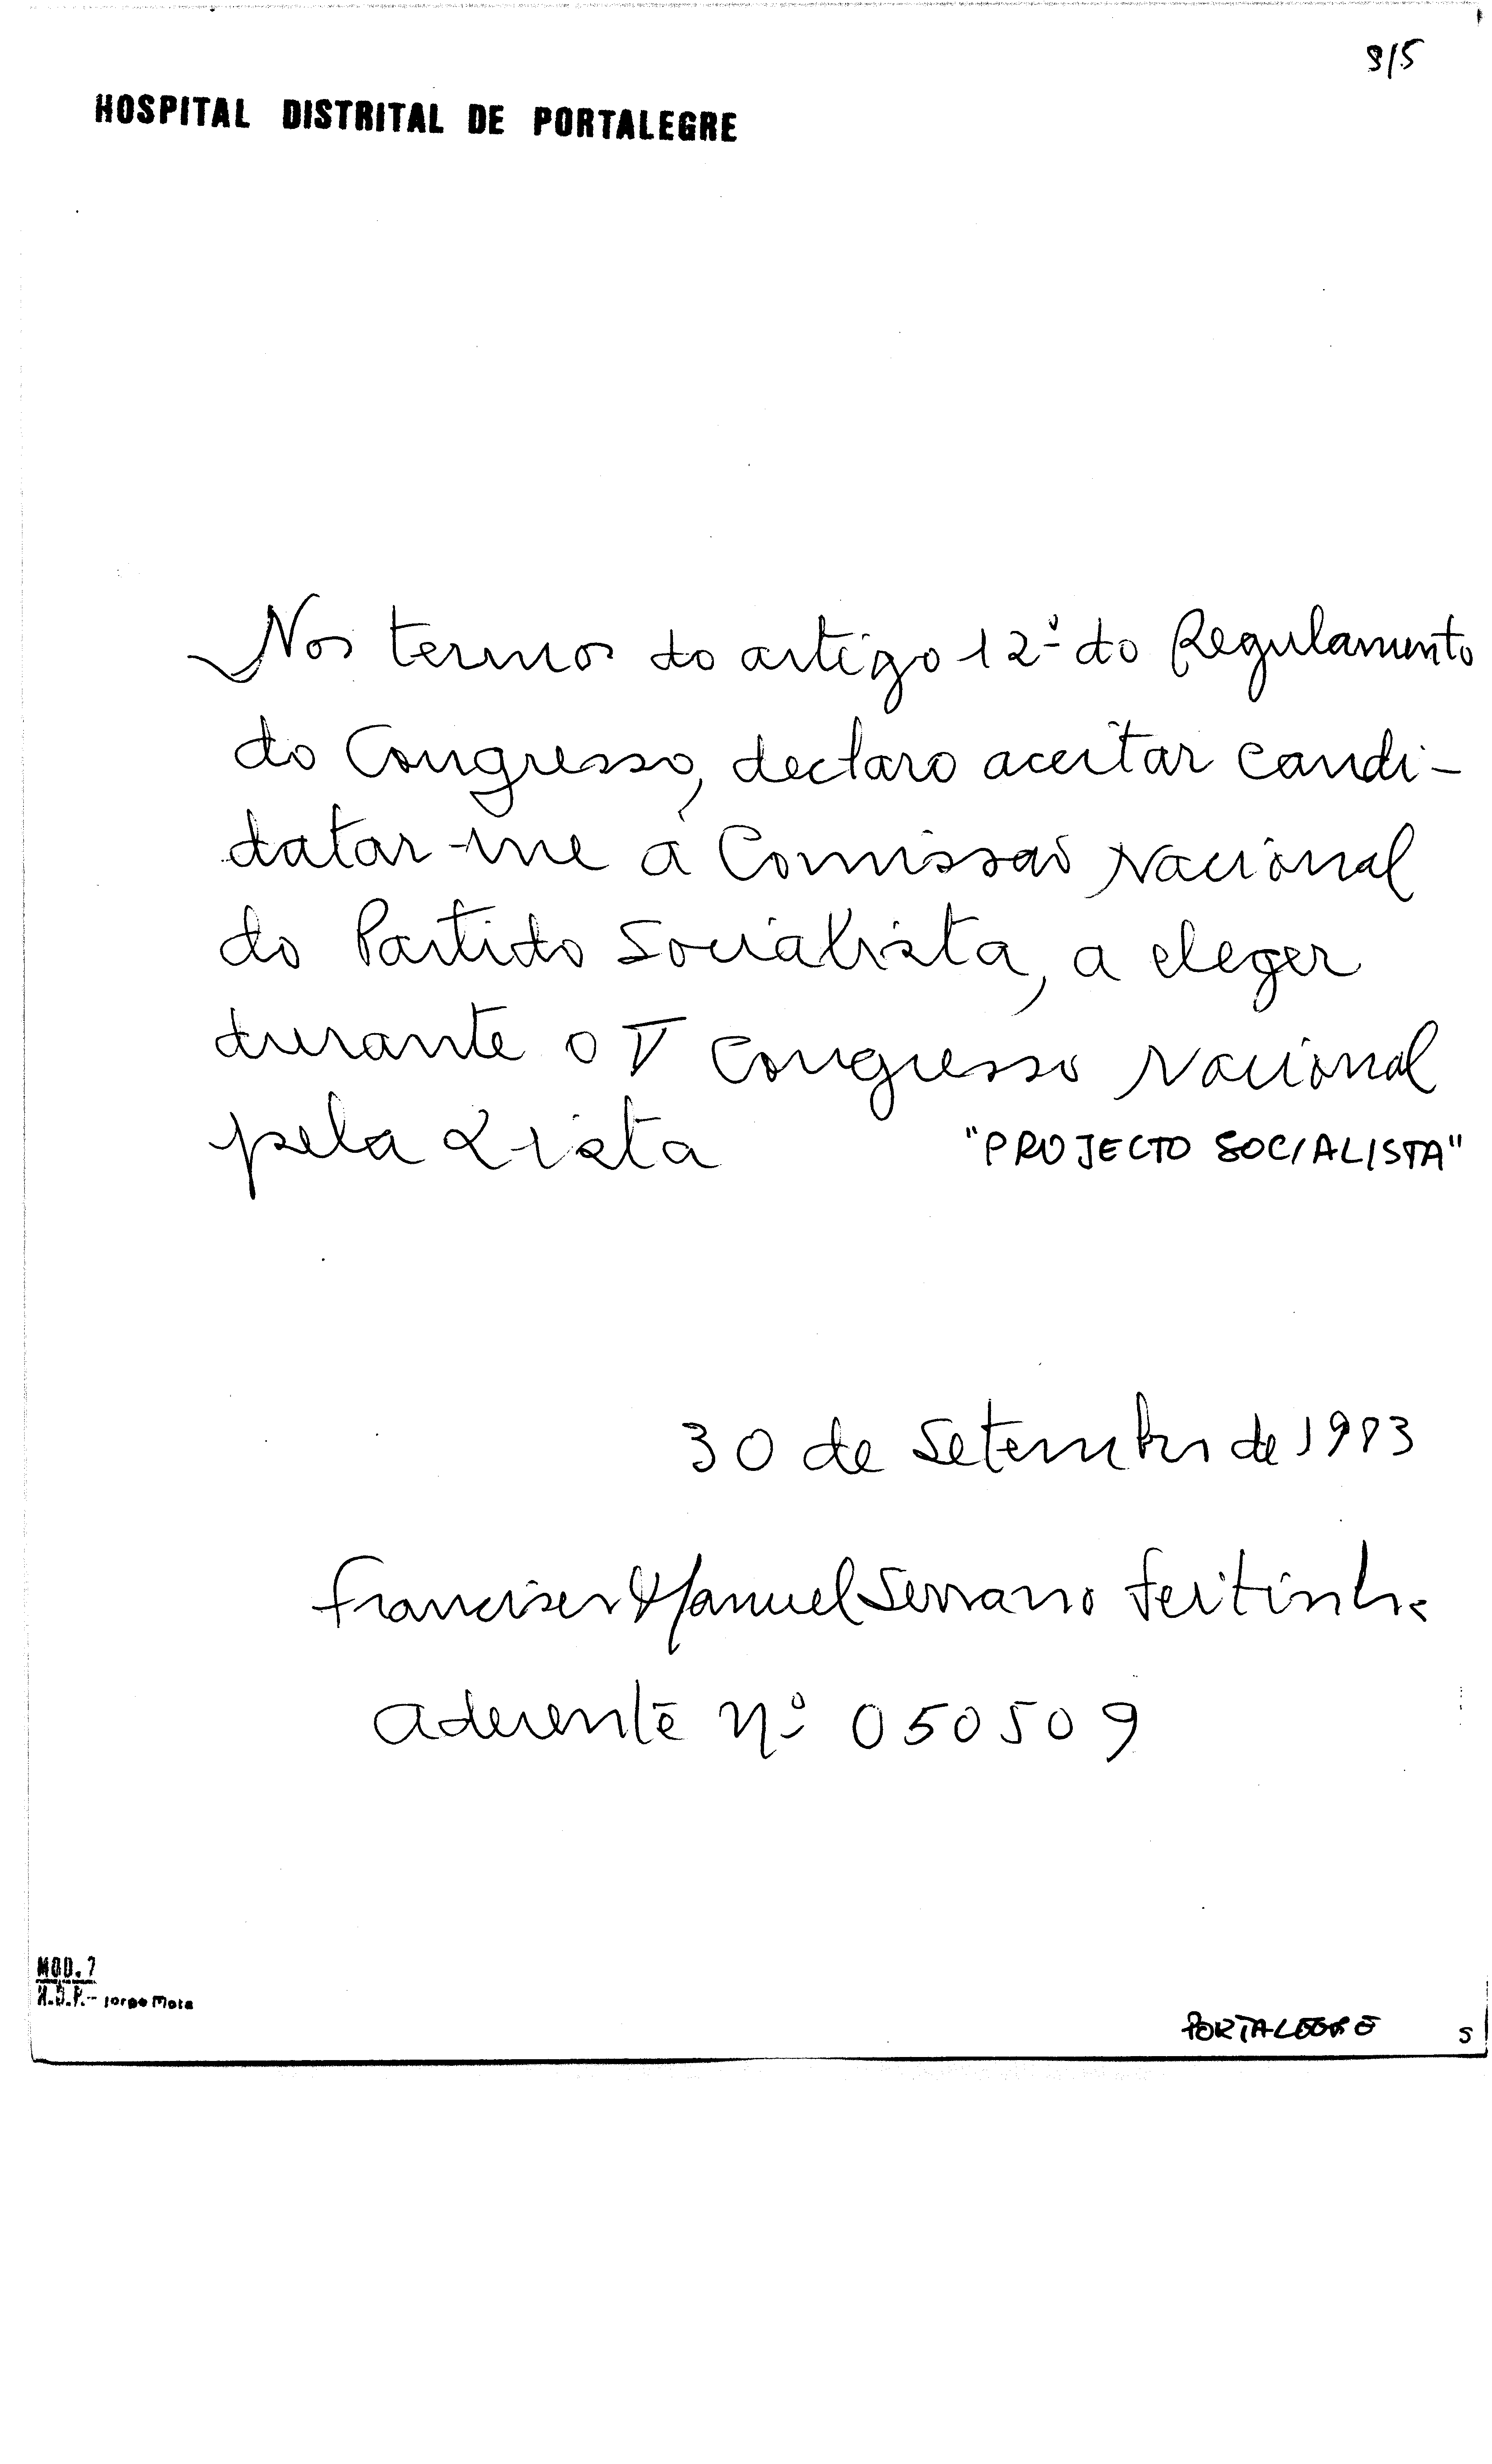 8/5
HOSPITAL DISTRITAL DE PORTALEGRE
Nos termos do artigo 12º do Regulamento
do Congresso, declaro aceitar candi-
datar-me à Comissão Nacional
do Partido Socialista, a eleger
durante o V Congresso Nacional
pela Lista "PROJECTO SOCIALISTA"
30 de Setembro de 1983
Francisco Manuel Serrano Feitinha
aderente nº 050509
MOD. 7
H.D.P.- Jorge Mota
PORTALEGRE S